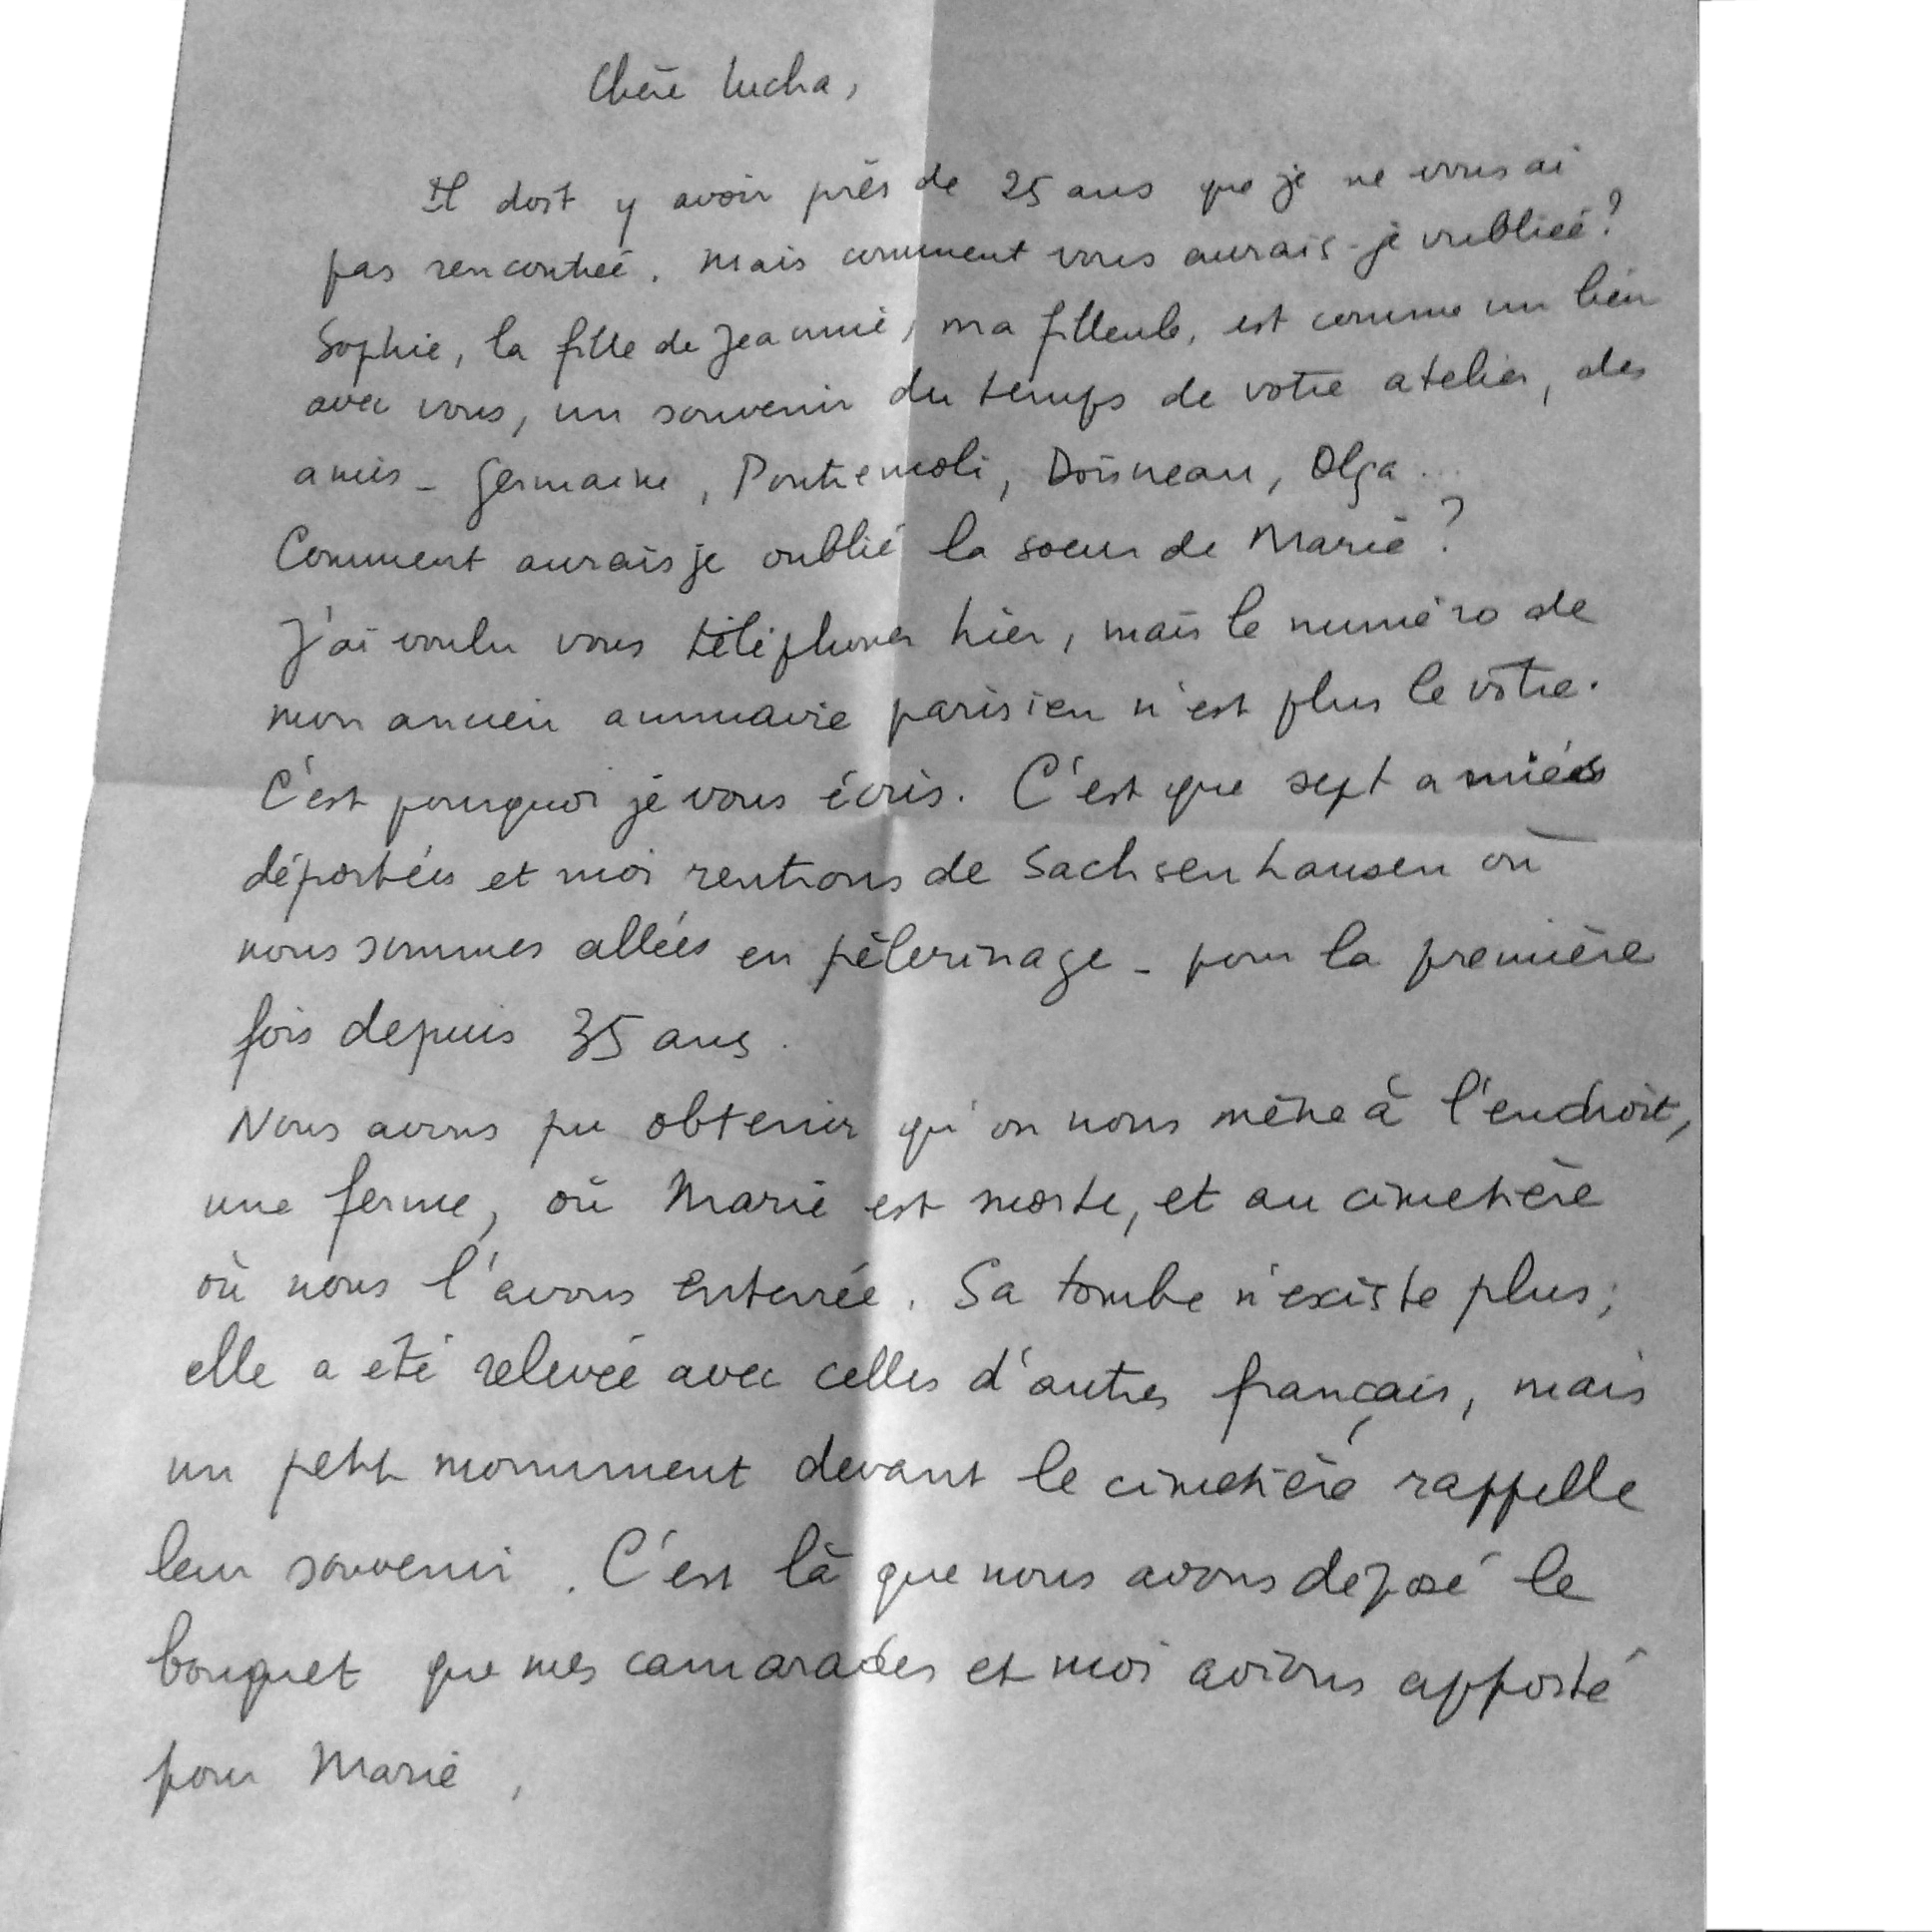 Chère Lucha,
Il doit y avoir près de 25 ans que je ne vous ai
pas rencontrée. Mais comment vous aurais-je oubliée ?
Sophie, la fille de Jeannie, ma filleule, est comme un lien
avec vous, un souvenir du temps de votre atelier, des
amis - Germaine, Pontremoli, Doisneau, Olga...
Comment aurais je oublié la soeur de Marie ?
J'ai voulu vous téléphoner hier, mais le numéro de
mon ancien annuaire parisien n'est plus le vôtre.
C'est pourquoi je vous écris. C'est que sept amiées
déportées et moi rentrons de Sachsenhausen où
nous sommes allées en pèlerinage - pour la première
fois depuis 35 ans.
Nous avons pu obtenir qu'on nous mène à l'endroit,
une ferme, où Marie est morte, et au cimetière
où nous l'avons enterrée. Sa tombe n'existe plus ;
elle a été relevée avec celles d'autres français, mais
un petit monument devant le cimetière rappelle
leur souvenir. C'est là que nous avons déposé le
bouquet que mes camarades et moi avions apporté
pour Marie,